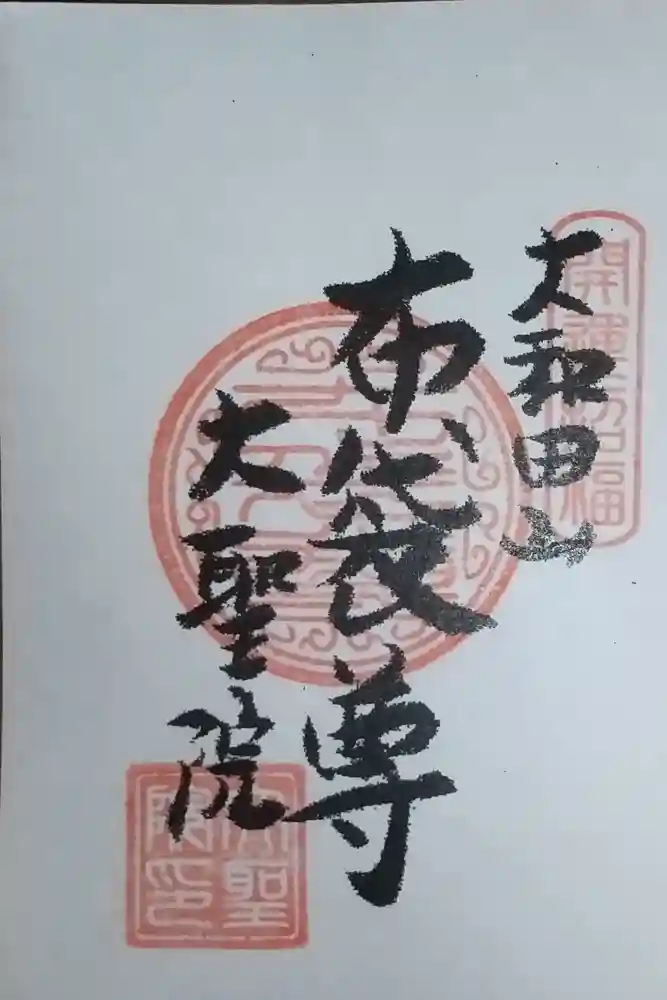 大和田山
開運招福
布袋尊
大聖院
大聖
院印